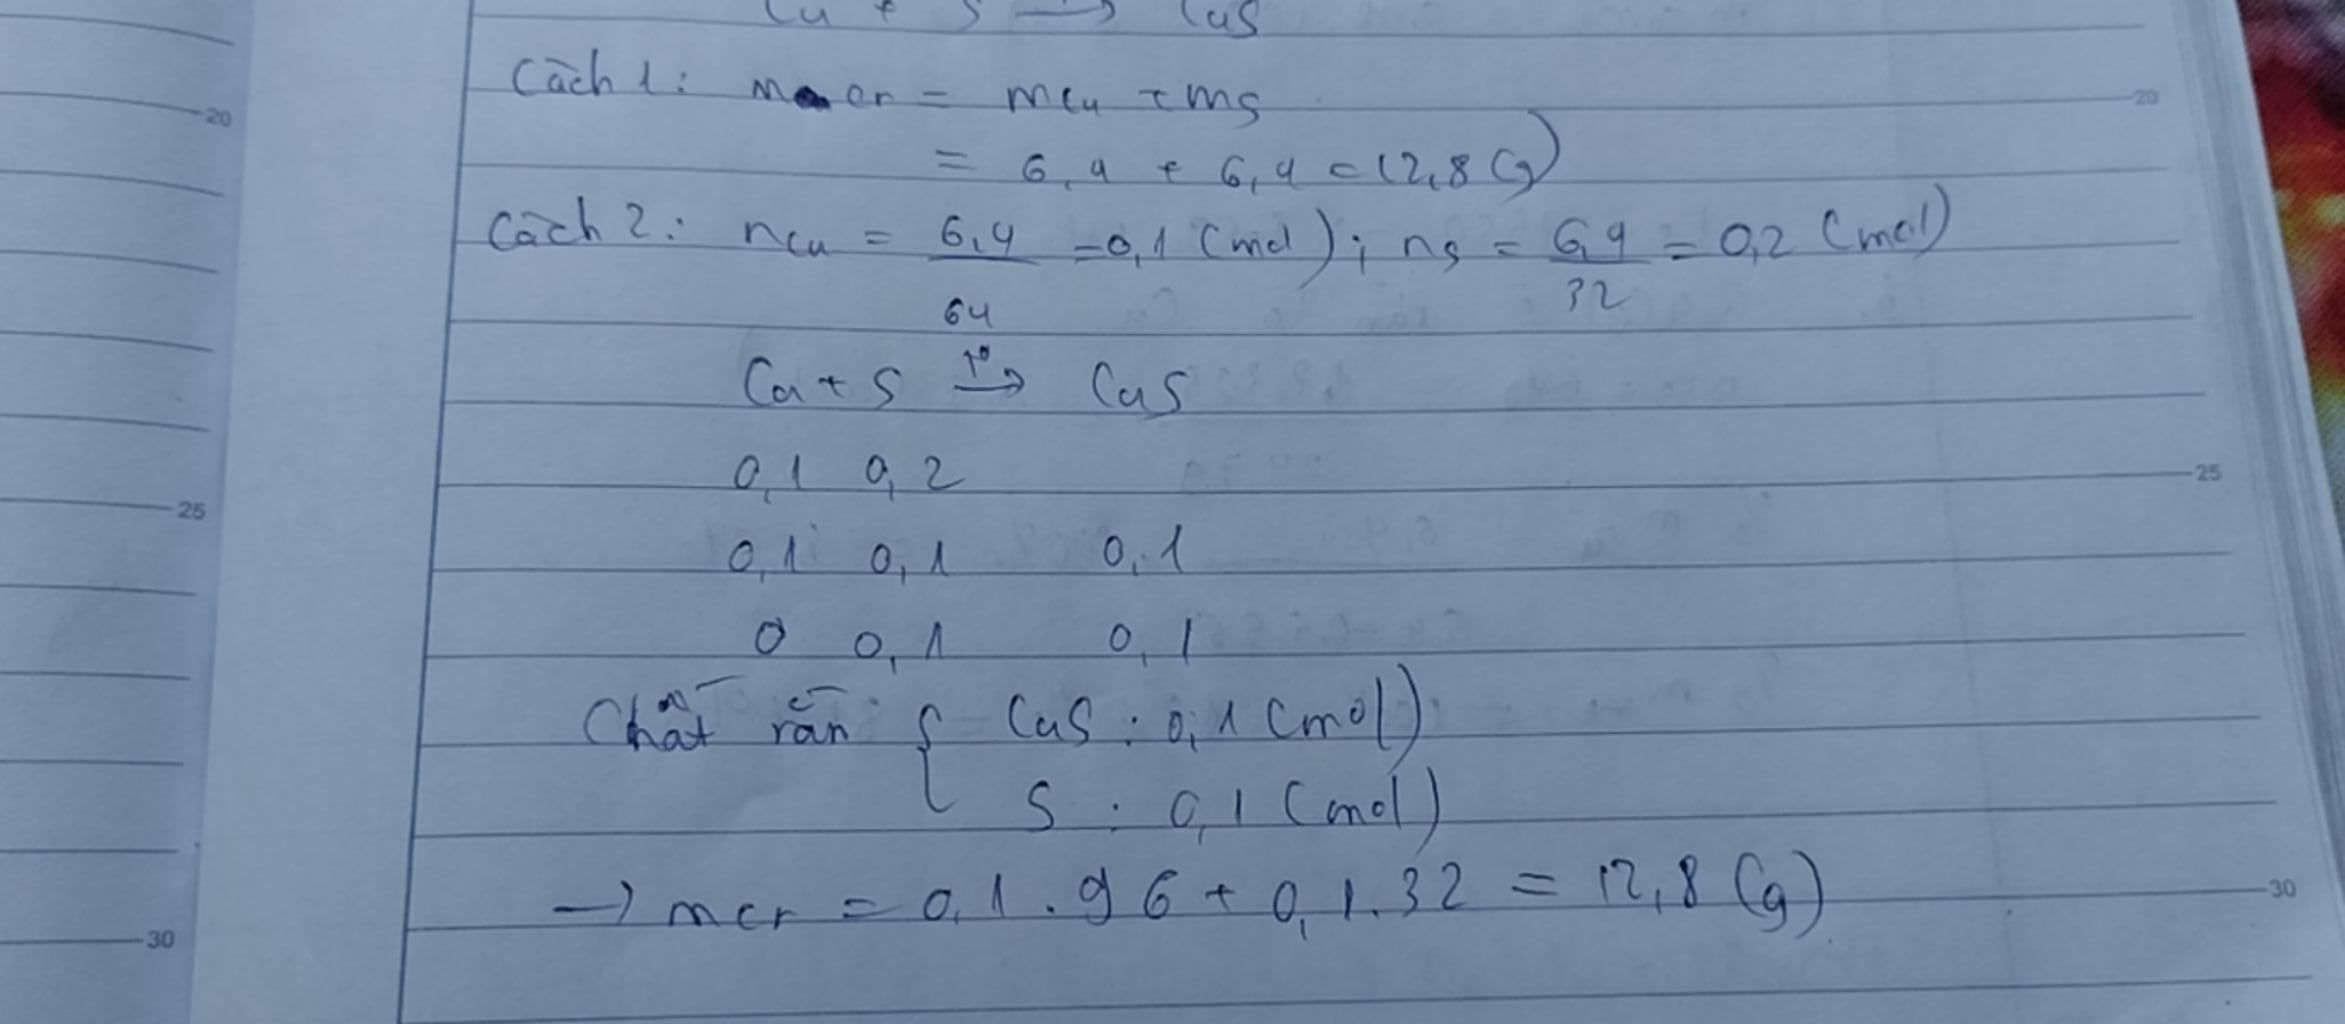 Cu + S → CuS
Cách 1: m cr = mCu + mS
= 6,4 + 6,4 = 12,8 (g)
Cách 2: nCu = 6,4/64 = 0,1 (mol); nS = 6,4/32 = 0,2 (mol)
Cu + S t°→ CuS
0,1 0,2
0,1 0,1 0,1
0 0,1 0,1
Chất rắn { CuS : 0,1 (mol)
S : 0,1 (mol)
→ mcr = 0,1 . 96 + 0,1 . 32 = 12,8 (g)
20
25
30
20
25
30